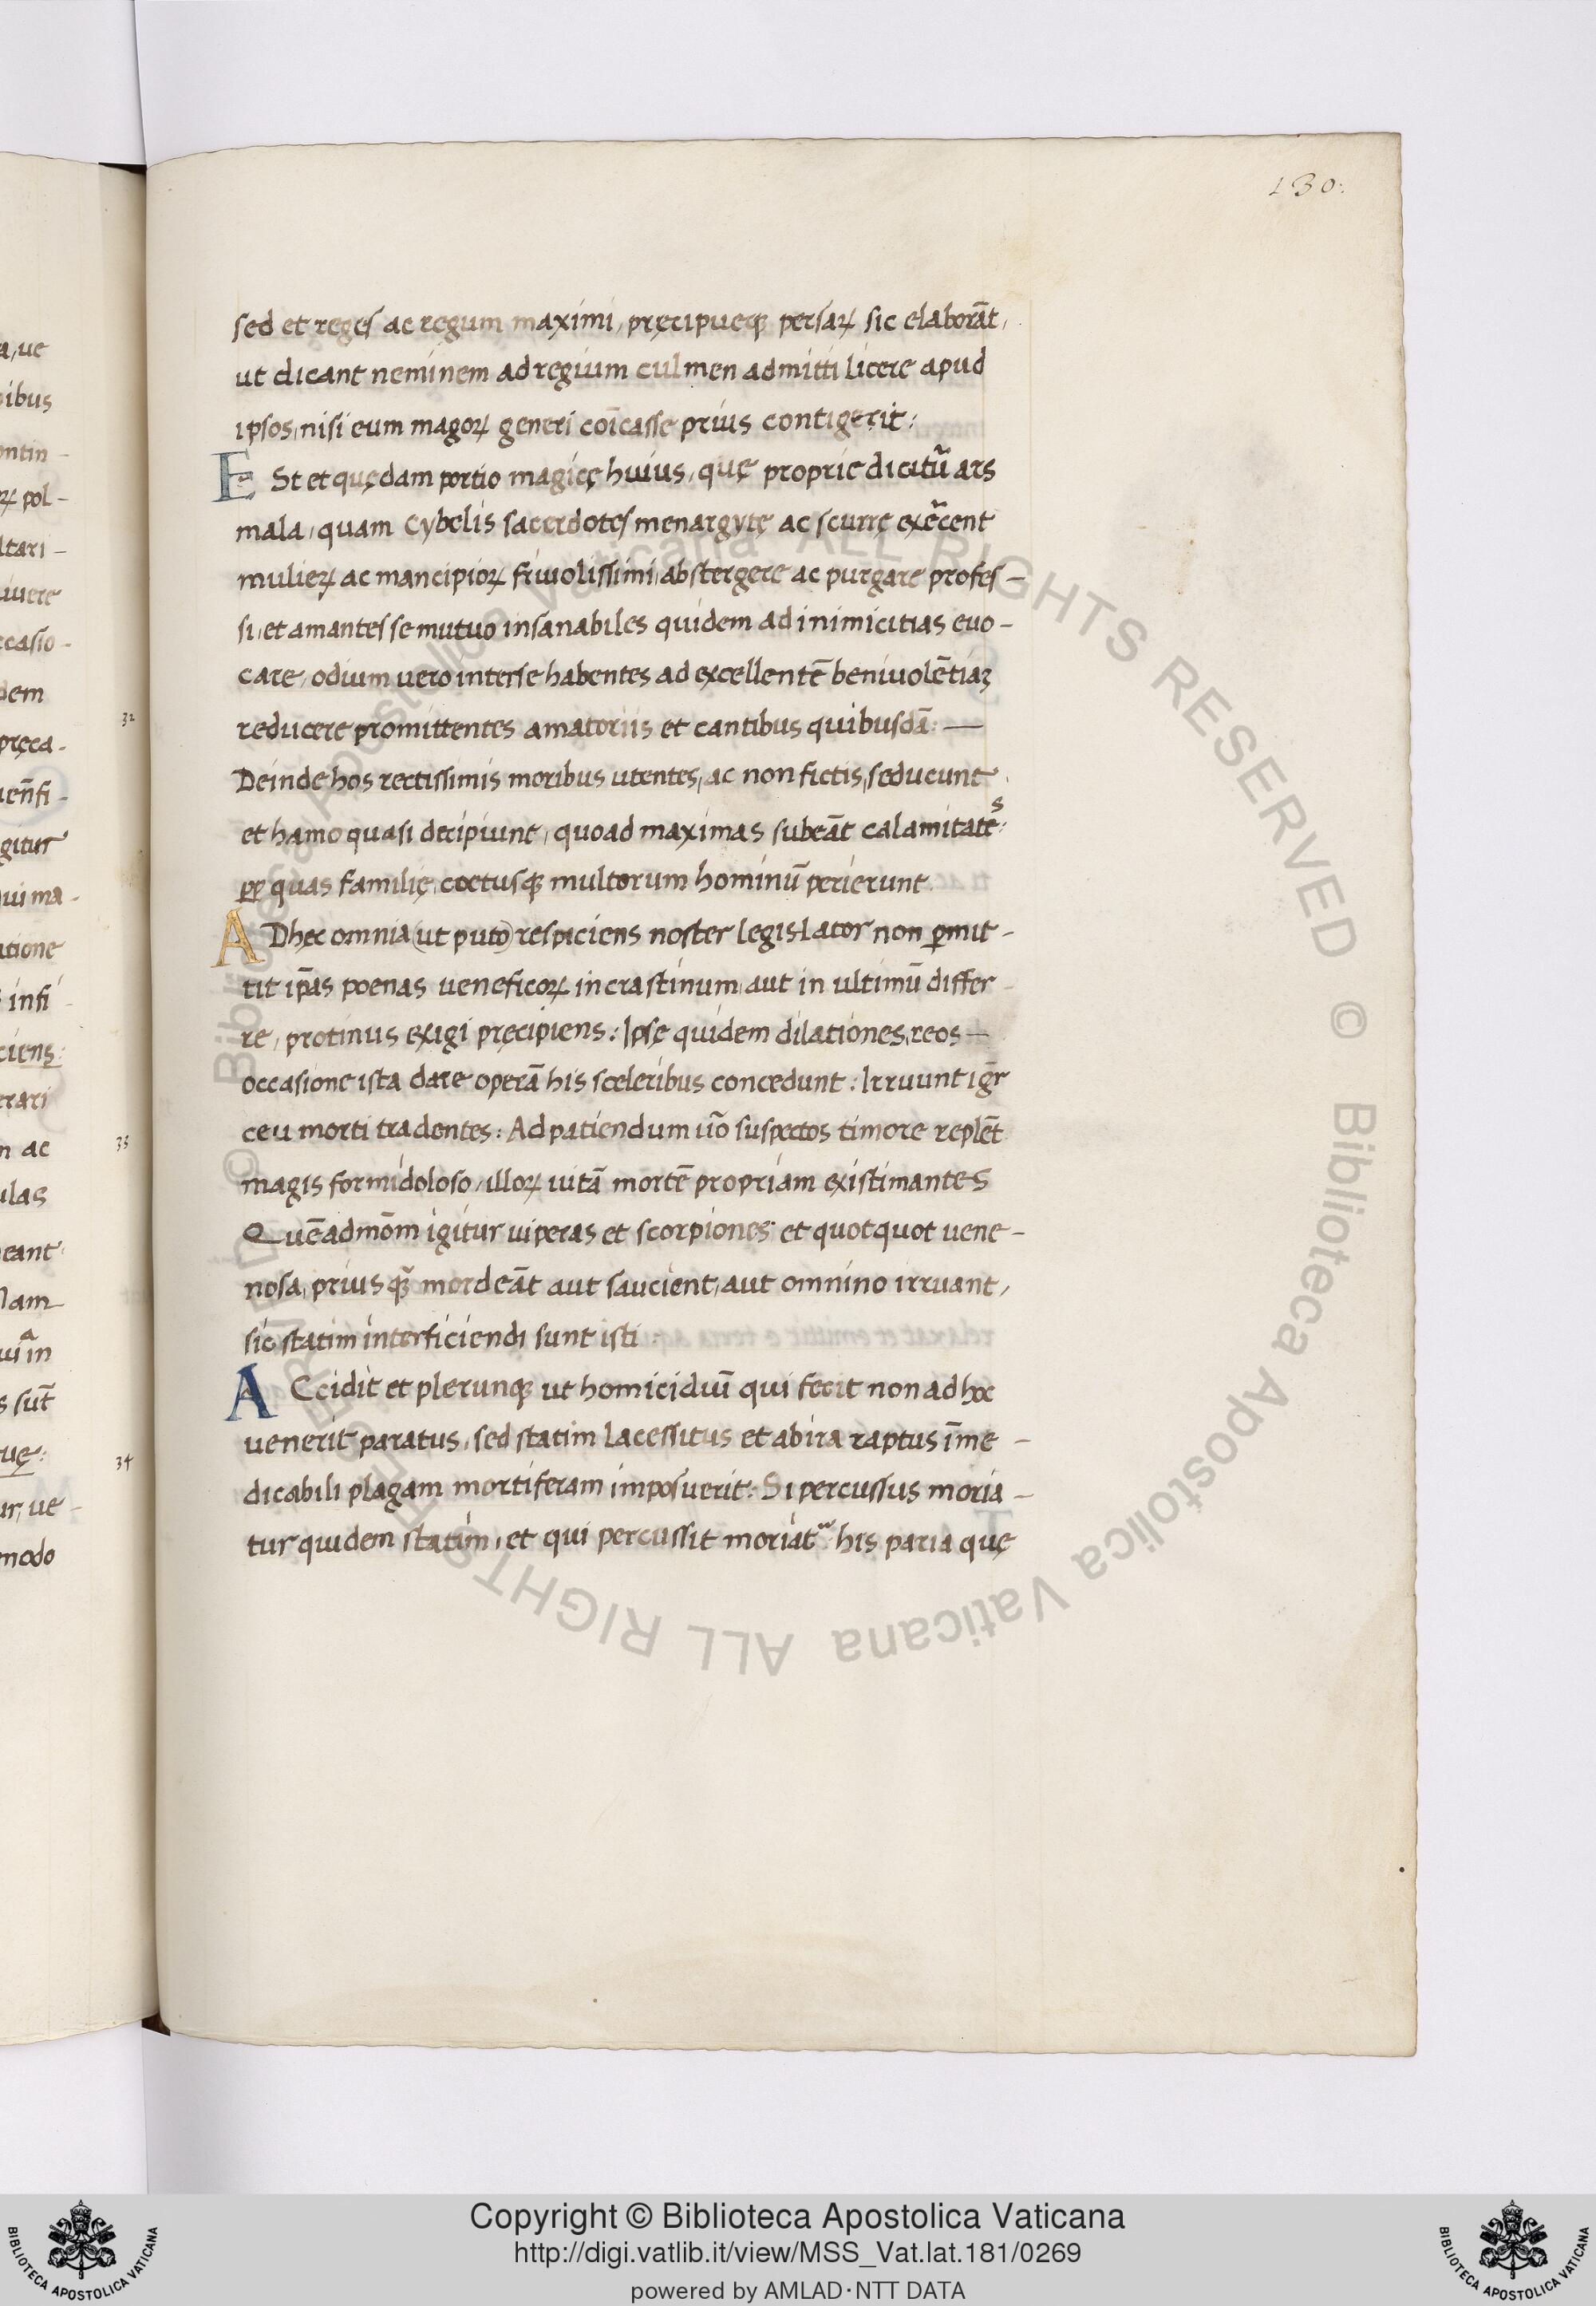 130.
sed et reges ac regum maximi, pręcipueqꝫ persaꝝ sic elaborāt,
ut dicant neminem ad regium culmen admitti licere apud
ipsos, nisi eum magoꝝ generi coīcasse prius contigerit:
ESt et quędam portio magicę huius, quę proprie dicitu᷑ ars
mala, quam Cybelis sacerdotes menargytę ac scurrę exe᷑cent
mulieꝝ ac mancipioꝝ friuolissimi, abstergere ac purgare profes-
si, et amantes se mutuo insanabiles quidem ad inimicitias euo-
care, odium uero inter se habentes ad excellentē beniuolētiaꝫ
reducere promittentes amatoriis et cantibus quibusdā: —
Deinde hos rectissimis moribus utentes, ac non fictis, seducunt
et hamo quasi decipiunt, quoad maximas subeāt calamitates:
ꝑ quas familię, coetusqꝫ multorum hominū perierunt.
ADhęc omnia (ut puto) respiciens noster legislator non ꝑmit-
tit ip̄as poenas ueneficoꝝ in crastinum aut in ultimū differ-
re, protinus exigi pręcipiens: Ipsę quidem dilationes, reos —
occasione ista dare operā his sceleribus concedunt: Irruunt igr̄
ceu morti tradentes: Ad patiendum uō suspectos timore replēt
magis formidoloso, illoꝝ uitā mortē propriam existimantes
Quēadmōm igitur uiperas et scorpiones et quotquot uene-
nosa, prius qꝫ̄ mordeāt aut saucient, aut omnino irruant,
sic statim interficiendi sunt isti:
ACcidit et plerunqꝫ ut homicidiū qui fecit non ad hoc
uenerit paratus, sed statim lacessitus et ab ira raptus īme-
dicabili plagam mortiferam imposuerit: Si percussus moria-
tur quidem statim, et qui percussit moriat᷑: his paria quę
32
33
34
© Biblioteca Apostolica Vaticana ALL RIGHTS RESERVED © Biblioteca Apostolica Vaticana ALL RIGHTS RESERVED
Copyright © Biblioteca Apostolica Vaticana
http://digi.vatlib.it/view/MSS_Vat.lat.181/0269
powered by AMLAD·NTT DATA
BIBLIOTECA APOSTOLICA VATICANA
BIBLIOTECA APOSTOLICA VATICANA